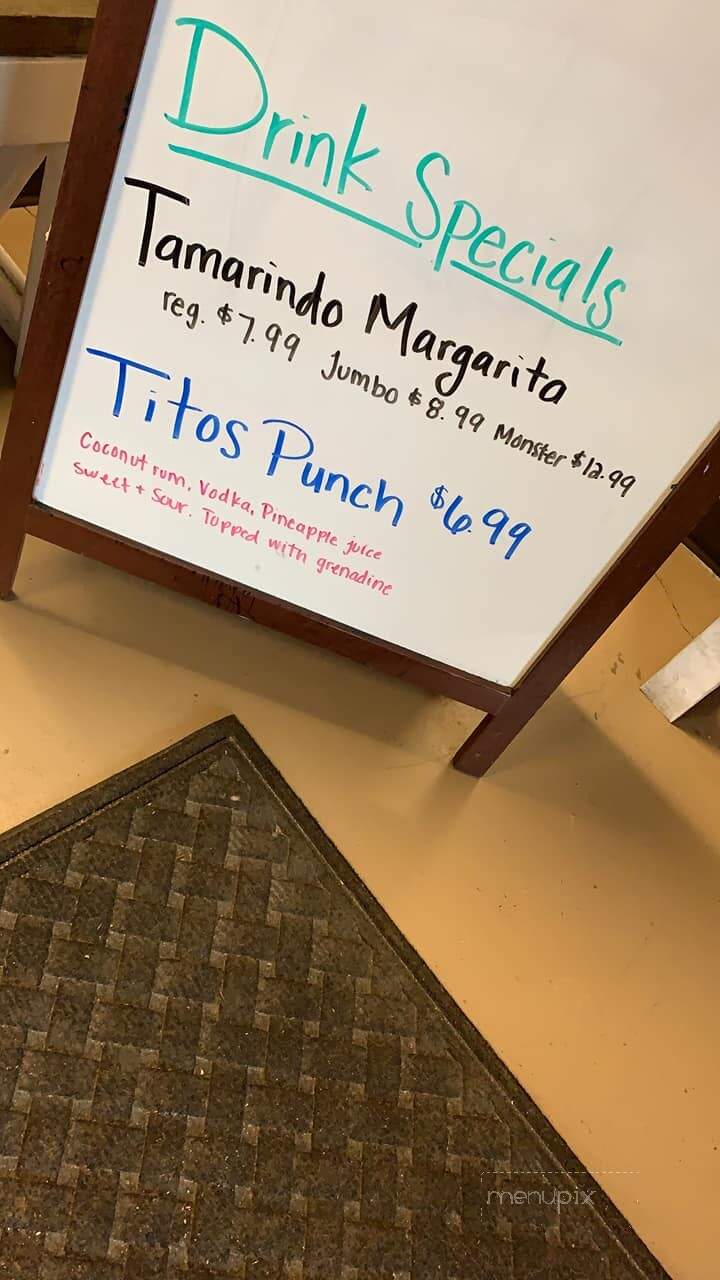 Drink Specials
Tamarindo Margarita
reg. $7.99 Jumbo $8.99 Monster $12.99
Titos Punch $6.99
Coconut rum, Vodka, Pineapple juice
Sweet + Sour. Topped with grenadine
menupix